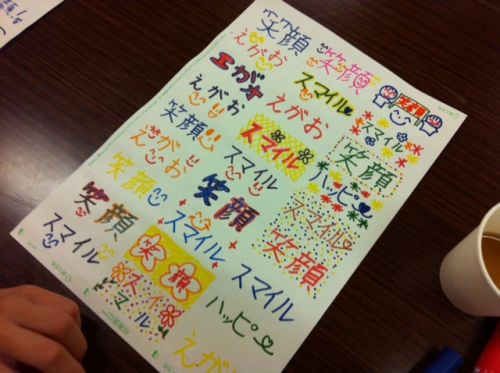 笑顔
笑顔
えがお
えがお
スマイル
笑顔
えがお
えがお
スマイル
スマイル
笑顔
笑顔
えがお
スマイル
ハッピー
笑顔
笑顔
スマイル
笑顔
スマイル
笑顔
スマイル
笑顔
スマイル
スマイル
ハッピー
えがお